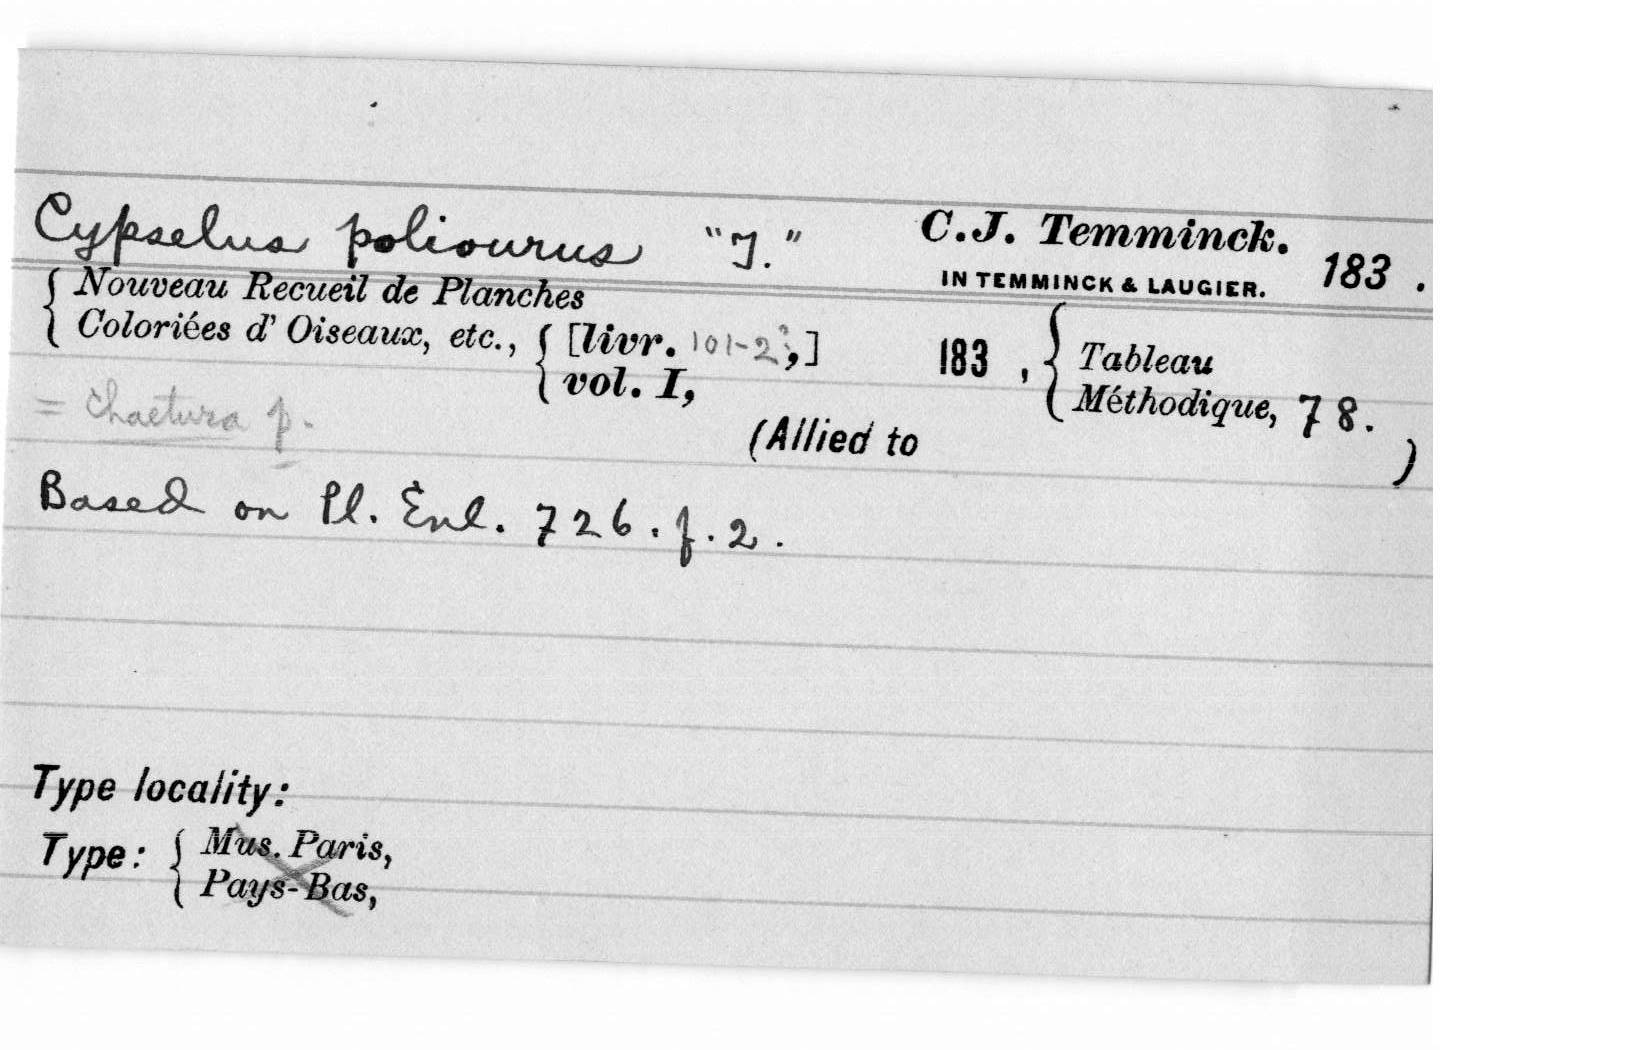 Cypselus poliourus "J." C.J. Temminck.
IN TEMMINCK & LAUGIER. 183 .
{ Nouveau Recueil de Planches
Coloriées d' Oiseaux, etc., { [livr. 101-2?,] 183 , { Tableau
vol. I, Méthodique, 78.
= Chaetura p.
(Allied to )
Based on Pl. Enl. 726. f. 2.
Type locality:
Type: { Mus. Paris,
Pays-Bas,